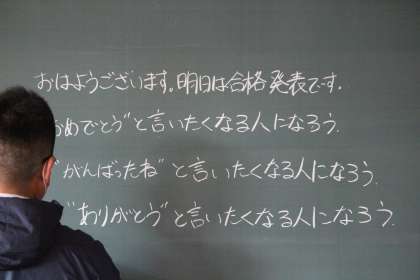 おはようございます。明日は合格発表です.
おめでとう”と言いたくなる人になろう.
“がんばったね”と言いたくなる人になろう.
“ありがとう”と言いたくなる人になろう.